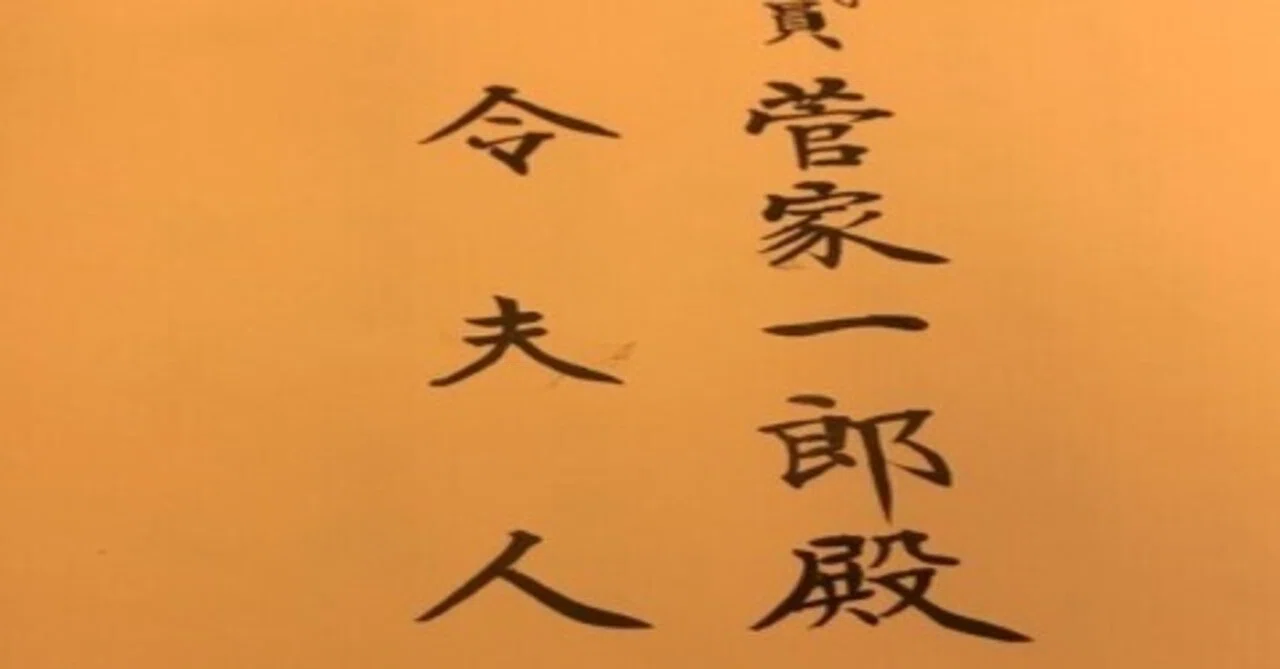 菅家一郎殿
令夫人